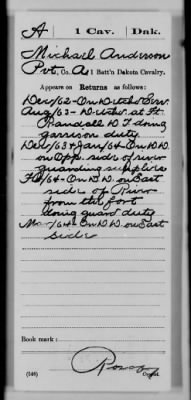 A 1 Cav. Dak.
Michael Anderson
Pvt., Co. A, 1 Batt'n Dakota Cavalry.
Appears on Returns as follows:
Dec/62-On D.
Aug/63-D. at Ft.
Randall D T doing
garrison duty
Dec/63 & Jan/64-On D.D.
on Opp. side of river
guarding supplies
Feb/64-On D.D. on East
side of River
from the fort
doing guard duty
Mar/64-On D.D. on East
side
Book mark:
(546) Copyist.